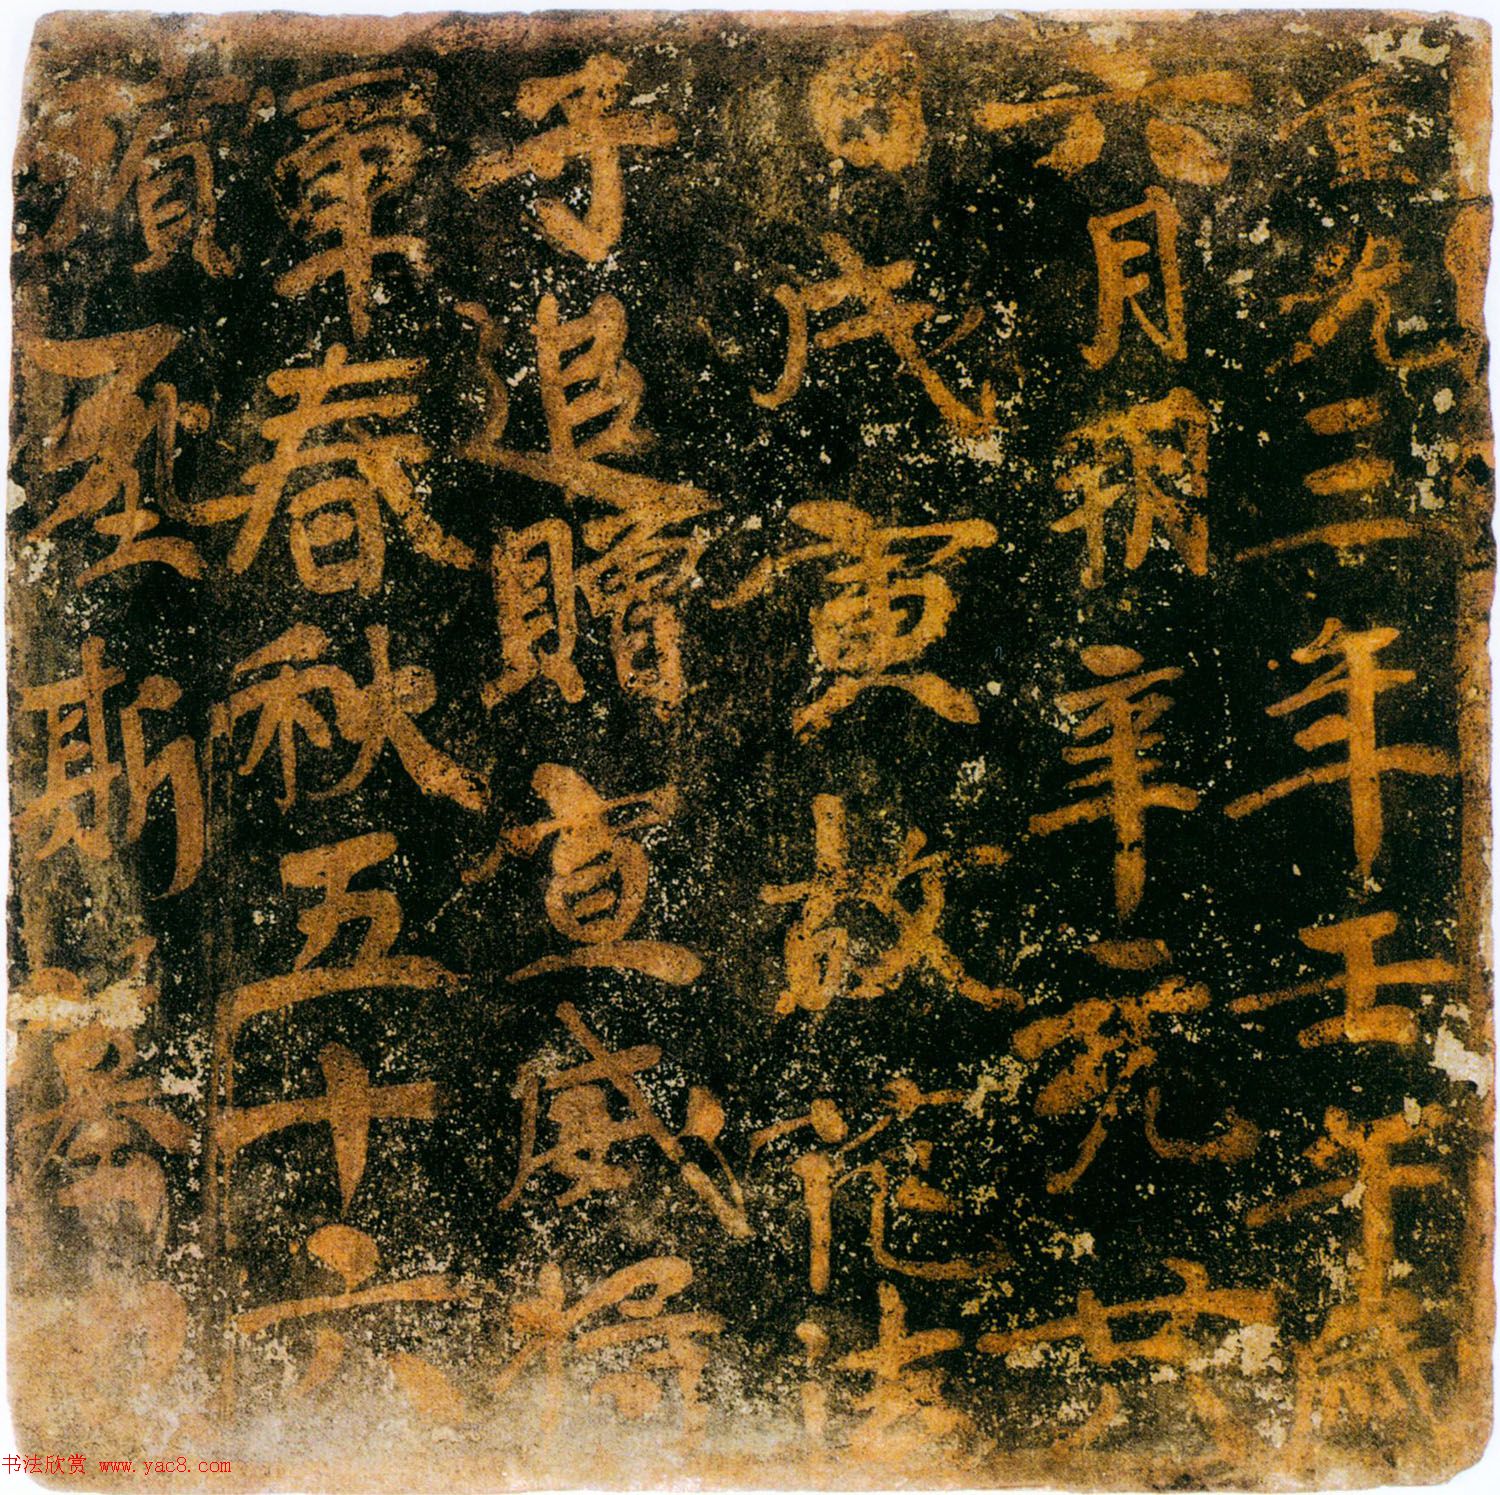 重光三年壬午歲
六月朔辛亥廿八
日戊寅故范法
子追贈宣威將
軍春秋五十六
殯斯
書法欣賞 www.yac8.com